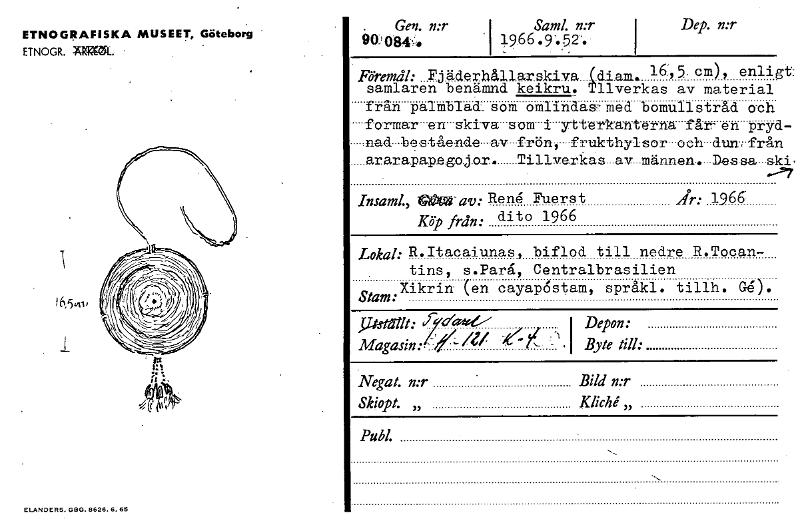 ETNOGRAFISKA MUSEET, Göteborg
ETNOGR. ARKEOL.
16,5cm
ELANDERS, GBG. 8626. 6. 65
Gen. n:r Saml. n:r Dep. n:r
90 084. 1966.9.52.
Föremål: Fjäderhållarskiva (diam. 16,5 cm), enligt
samlaren benämnd keikru. Tillverkas av material
från palmblad som omlindas med bomullstråd och
formar en skiva som i ytterkanterna får en pryd-
nad bestående av frön, frukthylsor och dun från
ararapapegojor. Tillverkas av männen. Dessa ski-
Insaml., Gåva av: René Fuerst År: 1966
Köp från: dito 1966
Lokal: R.Itacaiunas, biflod till nedre R.Tocan-
tins, s.Pará, Centralbrasilien
Stam: Xikrin (en cayapóstam, språkl. tillh. Gé).
Utställt: Sydam Depon:
Magasin: H-121 K-4 Byte till:
Negat. n:r Bild n:r
Skiopt. „ Kliché „
Publ.